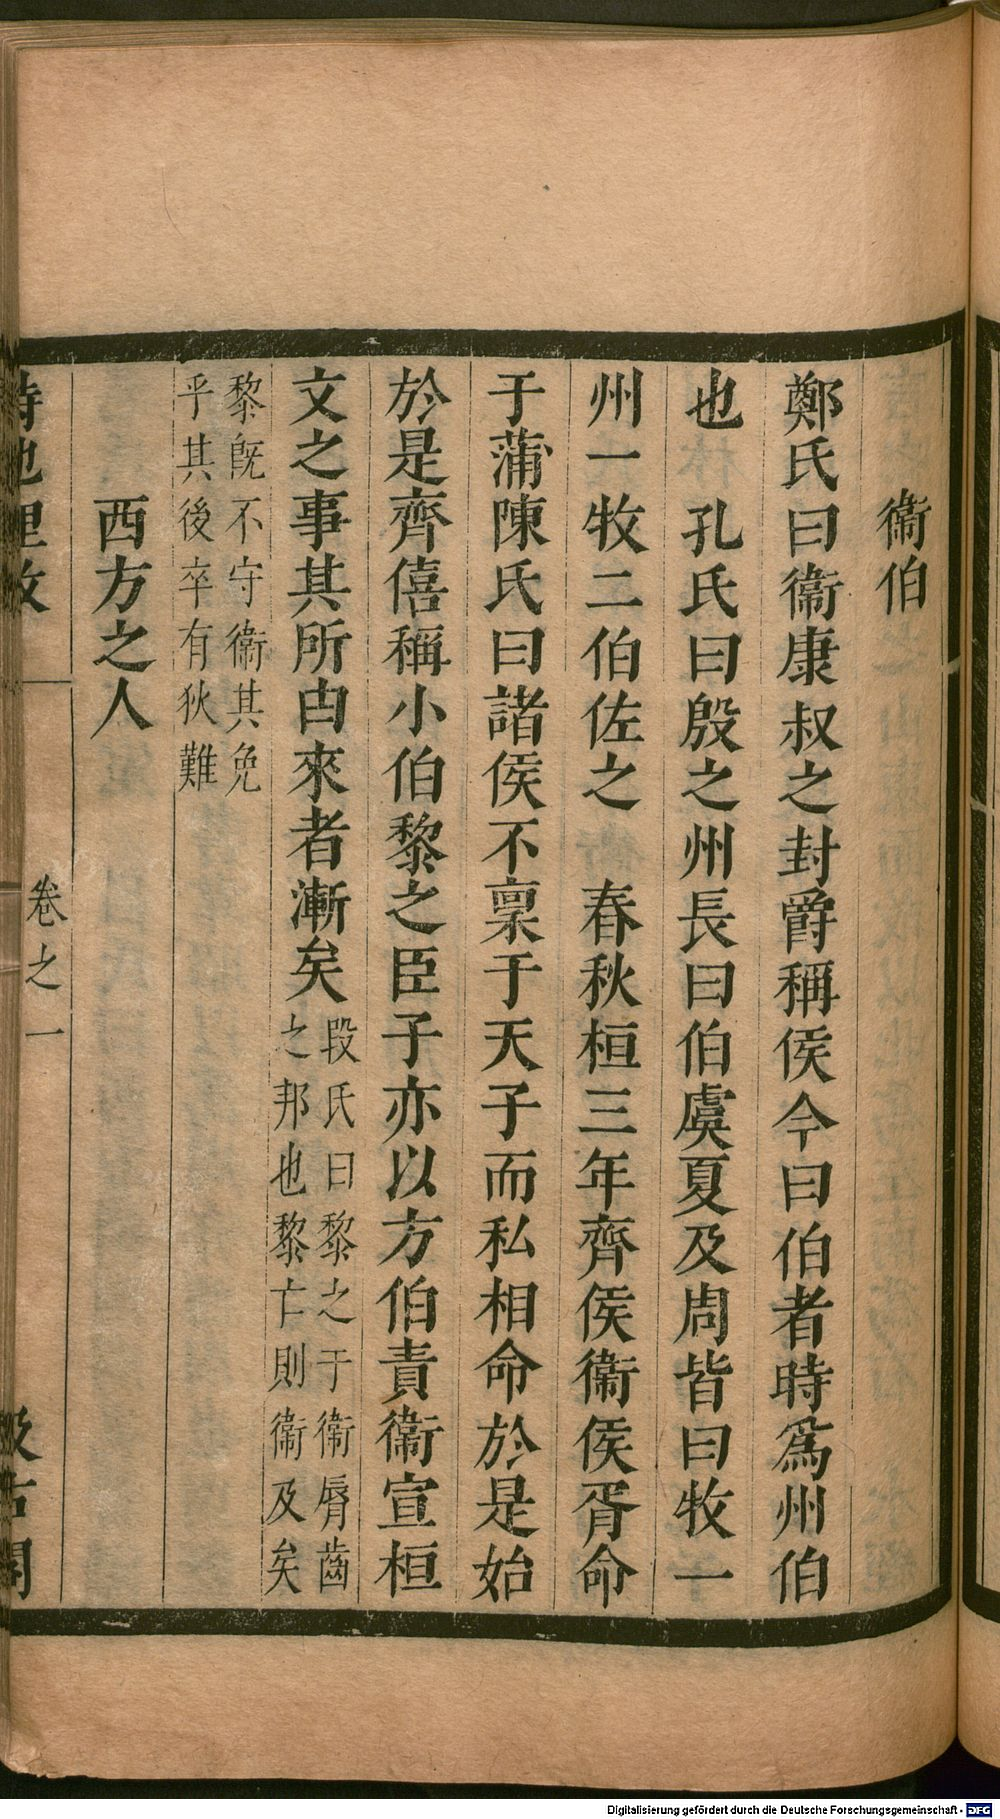 衞伯
鄭氏曰衞康叔之封爵稱侯今曰伯者時爲州伯
也　孔氏曰殷之州長曰伯虞夏及周皆曰牧一
州一牧二伯佐之　春秋桓三年齊侯衞侯胥命
于蒲陳氏曰諸侯不稟于天子而私相命於是始
於是齊僖稱小伯黎之臣子亦以方伯責衞宣桓
文之事其所由來者漸矣
段氏曰黎之于衞脣齒
之邦也黎亡則衞及矣
黎旣不守衞其免
乎其後卒有狄難
西方之人
詩地理攷
卷之一
汲古閣
Digitalisierung gefördert durch die Deutsche Forschungsgemeinschaft - DFG